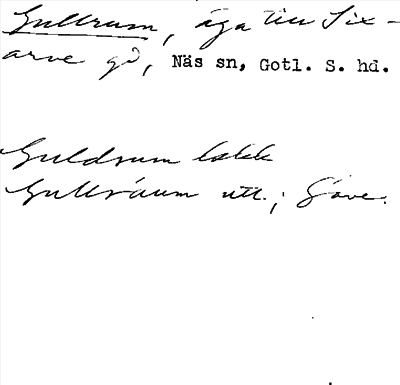 Gullrum, äga till Six-
arve gd, Näs sn, Gotl. S. hd.
Guldrum lakk
Gullråum utt.; Säve.